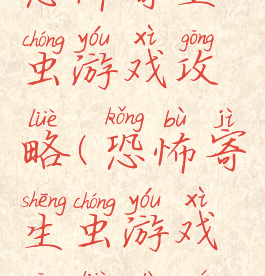 chóng yóu xì gōng
虫游戏攻
lüè kǒng bù jì
略(恐怖寄
shēng chóng yóu xì
生虫游戏